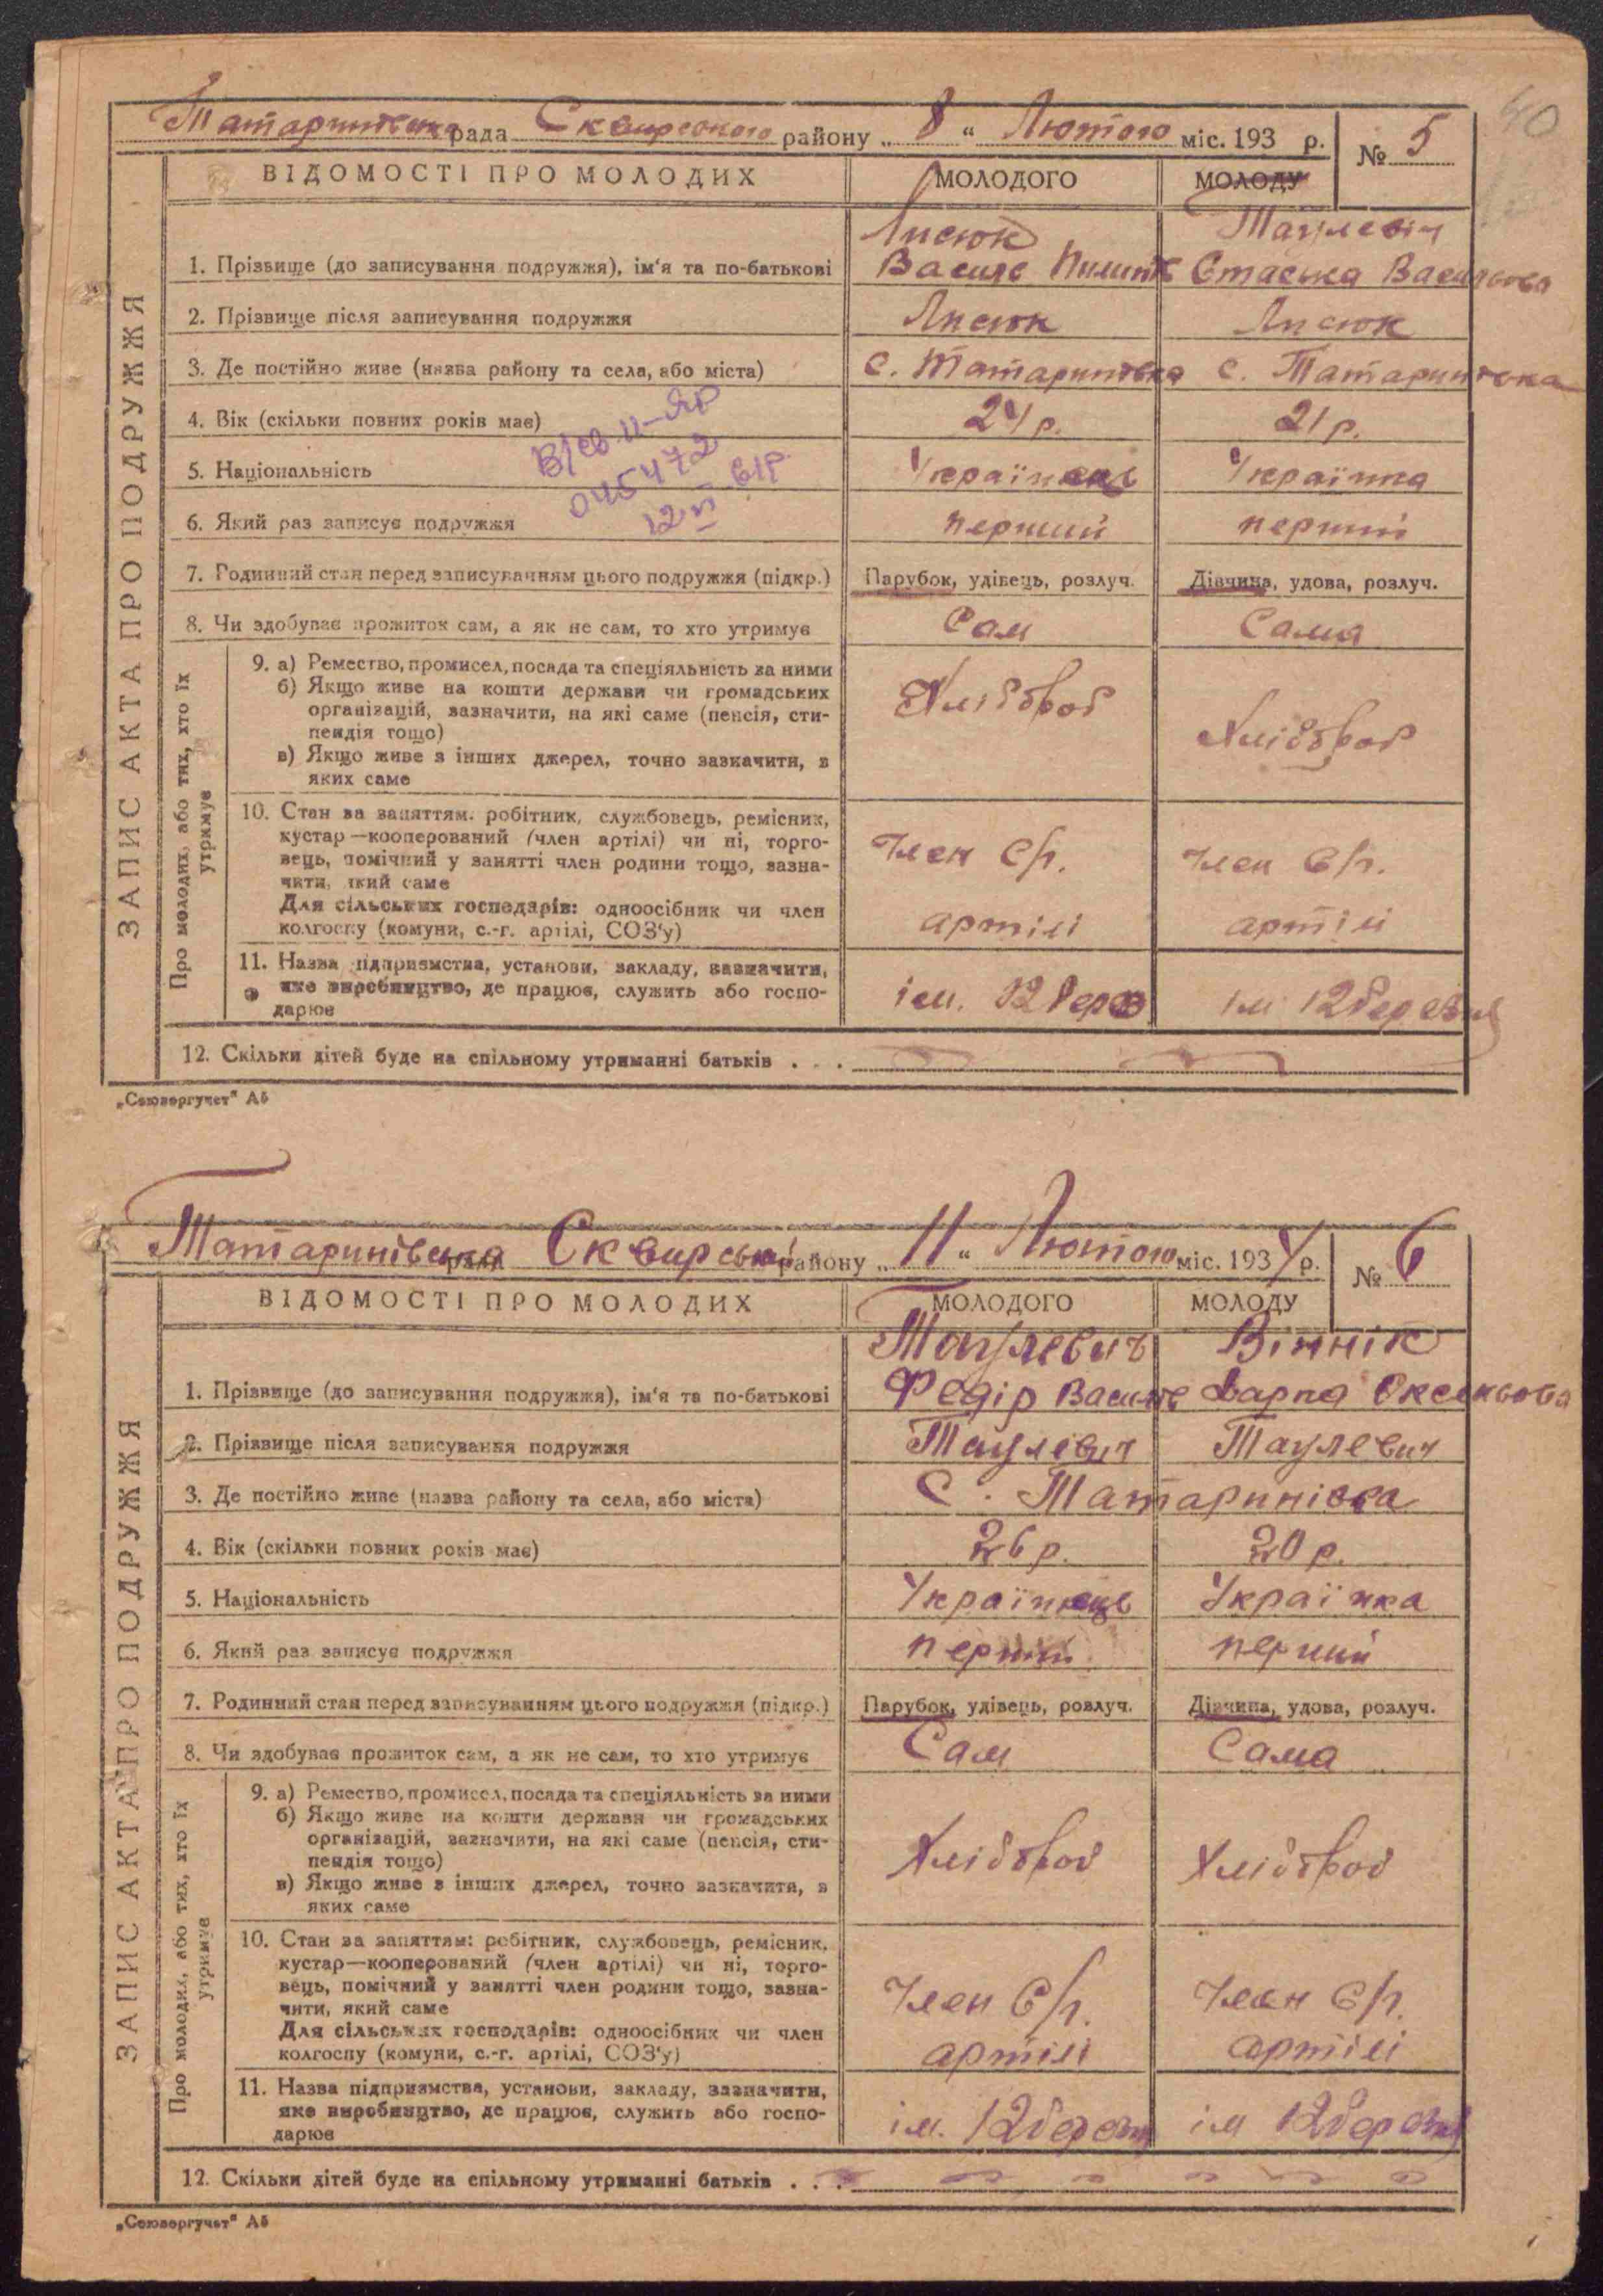 40
Татаринівська рада Сквирського району „ 8 “ Лютого міс. 193 р. № 5
ВІДОМОСТІ ПРО МОЛОДИХ МОЛОДОГО МОЛОДУ
ЗАПИС АКТА ПРО ПОДРУЖЖЯ
Лисюк Таулевич
1. Прізвище (до записування подружжя), ім‘я та по-батькові Василь Пилип Стаська Васильова
2. Прізвище після записування подружжя Лисюк Лисюк
3. Де постійно живе (назва району та села, або міста) с. Татаринівка с. Татаринівка
4. Вік (скільки повних років має) 24 р. 21 р.
5. Національність Українець Українка
6. Який раз записує подружжя перший перший
В/св II-ЯР
045472
12 VI 61р.
7. Родинний стан перед записуванням цього подружжя (підкр.) Парубок, удівець, розлуч. Дівчина, удова, розлуч.
8. Чи здобуває прожиток сам, а як не сам, то хто утримує Сам Сама
Про молодих, або тих, хто їх утримує
9. а) Ремество, промисел, посада та спеціяльність за ними
б) Якщо живе на кошти держави чи громадських
організацій, зазначити, на які саме (пенсія, сти-
пендія тощо)
в) Якщо живе з інших джерел, точно зазначити, з
яких саме
Хлібороб Хлібороб
10. Стан за заняттям: робітник, службовець, ремісник,
кустар—кооперований (член артілі) чи ні, торго-
вець, помічний у занятті член родини тощо, зазна-
чити, який саме
Для сільських господарів: одноосібник чи член
колгоспу (комуни, с.-г. артілі, СОЗ‘у)
Член с/г. Член с/г.
артілі артілі
11. Назва підприємства, установи, закладу, зазначити,
яке виробництво, де працює, служить або госпо-
дарює
ім. 12 берез ім 12 березня
12. Скільки дітей буде на спільному утриманні батьків . . .
„Союзоргучет“ А5
Татаринівська рада Сквирський району „ 11 “ Лютого міс. 1934 р. № 6
ВІДОМОСТІ ПРО МОЛОДИХ МОЛОДОГО МОЛОДУ
ЗАПИС АКТА ПРО ПОДРУЖЖЯ
Таулевич Віннік
1. Прізвище (до записування подружжя), ім‘я та по-батькові Федір Василь Дарпа Оксеньова
2. Прізвище після записування подружжя Таулевич Таулевич
3. Де постійно живе (назва району та села, або міста) С. Татаринівка
4. Вік (скільки повних років має) 26 р. 20 р.
5. Національність Українець Українка
6. Який раз записує подружжя перший перший
7. Родинний стан перед записуванням цього подружжя (підкр.) Парубок, удівець, розлуч. Дівчина, удова, розлуч.
8. Чи здобуває прожиток сам, а як не сам, то хто утримує Сам Сама
Про молодих, або тих, хто їх утримує
9. а) Ремество, промисел, посада та спеціяльність за ними
б) Якщо живе на кошти держави чи громадських
організацій, зазначити, на які саме (пенсія, сти-
пендія тощо)
в) Якщо живе з інших джерел, точно зазначити, з
яких саме
Хлібороб Хлібороб
10. Стан за заняттям: робітник, службовець, ремісник,
кустар—кооперований (член артілі) чи ні, торго-
вець, помічний у занятті член родини тощо, зазна-
чити, який саме
Для сільських господарів: одноосібник чи член
колгоспу (комуни, с.-г. артілі, СОЗ‘у)
Член с/г. Член с/г.
артілі артілі
11. Назва підприємства, установи, закладу, зазначити,
яке виробництво, де працює, служить або госпо-
дарює
ім. 12 березня ім 12 березня
12. Скільки дітей буде на спільному утриманні батьків . . .
„Союзоргучет“ А5